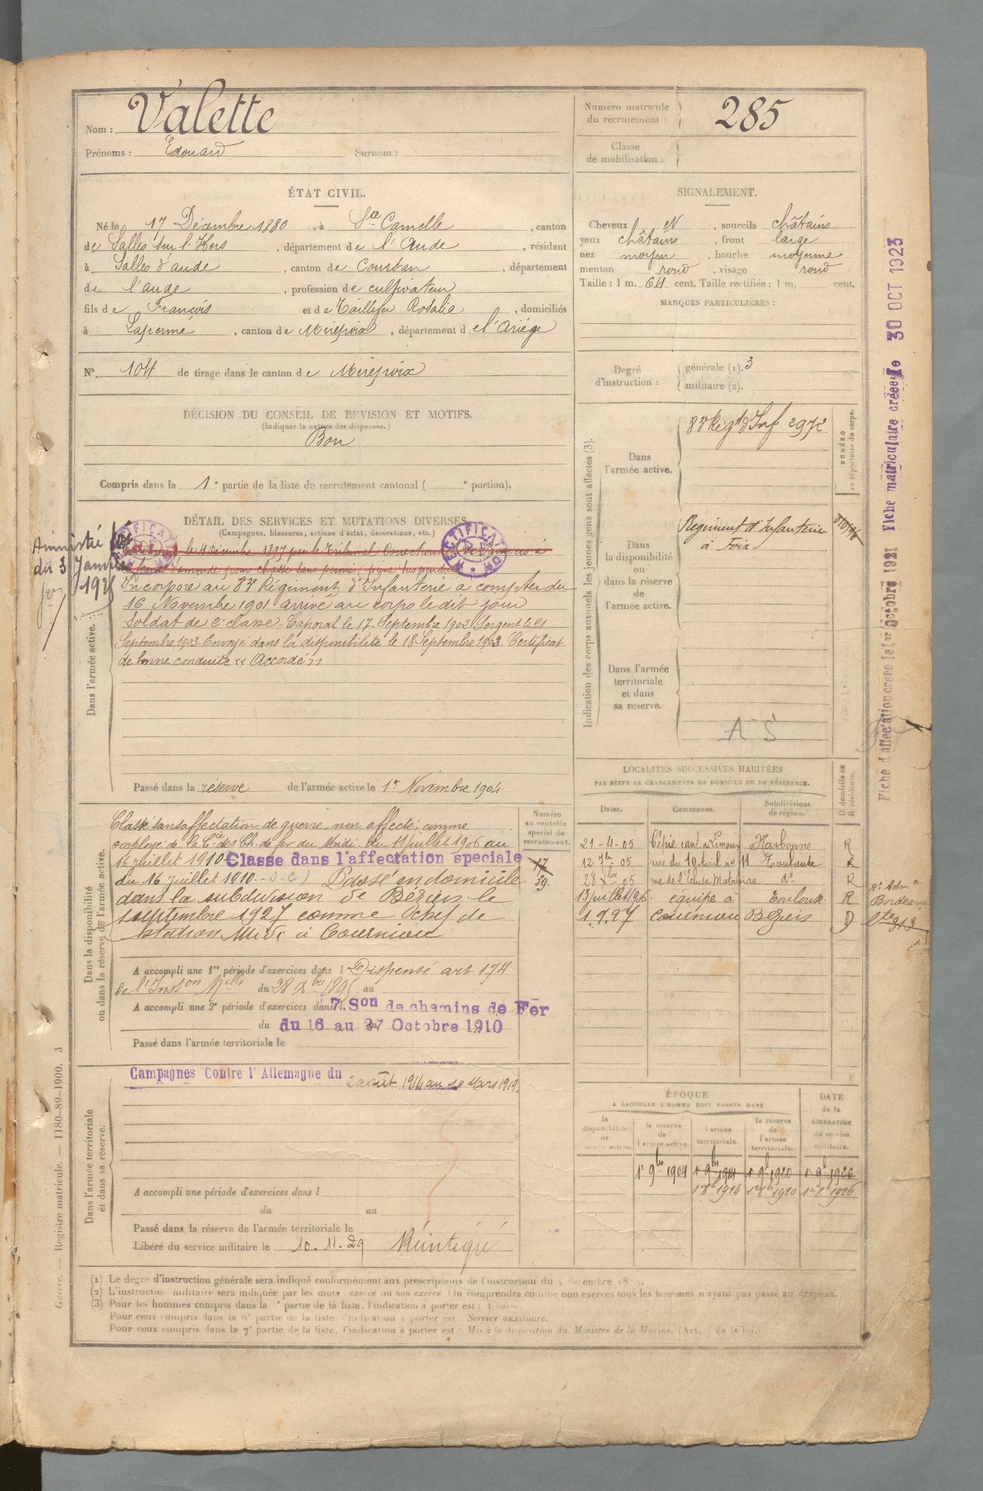 Nom : Valette
Prénoms : Edouard Surnom :
Numéro matricule du recrutement : 285
Classe de mobilisation :
ÉTAT CIVIL.
Né le 17 Décembre 1880, à Ste Camelle, canton
de Salles sur l'Hers, département de l'Aude, résidant
à Salles d'aude, canton de Coursan, département
de l'aude, profession de cultivateur
fils de François et de Taillefer Rosalie, domiciliés
à Laperne, canton de Mirepoix, département de l'Ariège
No. 104 de tirage dans le canton de Mirepoix
SIGNALEMENT.
Cheveux N, sourcils châtains
yeux châtains, front large
nez moyen, bouche moyenne
menton rond, visage rond
Taille : 1 m. 64 cent. Taille rectifiée : 1 m. cent.
MARQUES PARTICULIÈRES :
Degré d'instruction : générale (1). 3
militaire (2).
DÉCISION DU CONSEIL DE REVISION ET MOTIFS.
(Indiquer la nature des dispenses.)
Bon
Compris dans la 1e partie de la liste de recrutement cantonal ( e portion).
DÉTAIL DES SERVICES ET MUTATIONS DIVERSES.
(Campagnes, blessures, actions d'éclat, décorations, etc.)
Amnistié
du 3 Janvier
1925
Dans l'armée active.
le 4 Décembre 1897 par le Tribunal Correctionnel de
amende pour chasse sans permis
Incorporé au 87 Régiment d'Infanterie à compter du
16 Novembre 1901 arrivé au corps le dit jour
Soldat de 2e classe. Caporal le 17 Septembre 1902 Sergent le 21
Septembre 1903. Envoyé dans la disponibilité le 18 Septembre 1903. Certificat
de bonne conduite "Accordé"
Passé dans la réserve de l'armée active le 1er Novembre 1904
Indication des corps auxquels les jeunes gens sont affectés (3).
NUMÉRO au répertoire du corps.
Dans l'armée active.
87 Régt d'Inf 2972
Dans la disponibilité ou dans la réserve de l'armée active.
Régiment d'Infanterie
à Foix
Dans l'armée territoriale et dans sa réserve.
A S
Fiche d'affectation créée le 1er Octobre 1921 Fiche matriculaire créée le 30 OCT 1923
Dans la disponibilité ou dans la réserve de l'armée active.
Numéro au contrôle spécial du recrutement.
Classé sans affectation de guerre, non affecté, comme
employé de la Cie des Ch. de fer du Midi du 11 juillet 1906 au
16 juillet 1910 Classé dans l'affectation spéciale
du 16 Juillet 1910. (S.C.) Passé en domicile
dans la subdivision de Béziers le
1 septembre 1927 comme Chef de
station Midi à Courniou
A accompli une 1re période d'exercices dans l Dispensé art 174
de l'Inston Melle du 28 Xbre 1895 au
A accompli une 2e période d'exercices dans l 7 Son de chemins de Fer
du 16 au 27 Octobre 1910
Passé dans l'armée territoriale le
LOCALITÉS SUCCESSIVES HABITÉES
PAR SUITE DE CHANGEMENTS DE DOMICILE OU DE RÉSIDENCE.
Dates. Communes. Subdivisions de région. D domicile ou R résidence.
21-4-05 Narbonne R
12 7bre 05 rue du 10 avril no 11 Toulouse R
28 05 do R
13 juillet 1906 équipe à Toulouse R
1927 Courniou Béziers D
Bordeaux
Dans l'armée territoriale et dans sa réserve.
Campagnes Contre l'Allemagne du 2 août 1914 au 10 Mars 1919
A accompli une période d'exercices dans l
du au
Passé dans la réserve de l'armée territoriale le
Libéré du service militaire le 10.11.29
ÉPOQUE
À LAQUELLE L'HOMME DOIT PASSER DANS
DATE de la LIBÉRATION du service militaire.
la disponibilité de l'armée active. la réserve de l'armée active. l'armée territoriale. la réserve de l'armée territoriale.
1er 9bre 1904 1er 9bre 1914 1er 9bre 1920 1er 9bre 1926
1er 8bre 1914 1er 8bre 1920 1er 8bre 1926
(1) Le degré d'instruction générale sera indiqué conformément aux prescriptions de l'instruction du décembre
(2) L'instruction militaire sera indiquée par les mots : exercé ou non exercé. On comprendra comme non exercés tous les hommes n'ayant pas passé au drapeau.
(3) Pour les hommes compris dans la e partie de la liste, l'indication à porter est :
Pour ceux compris dans la partie de la liste, l'indication à porter est : Service auxiliaire.
Pour ceux compris dans la 7e partie de la liste, l'indication à porter est : Mis à la disposition du Ministre de la Marine. (Art. de la loi.)
Guerre. — Registre matricule. — 1180-89-1900. 3